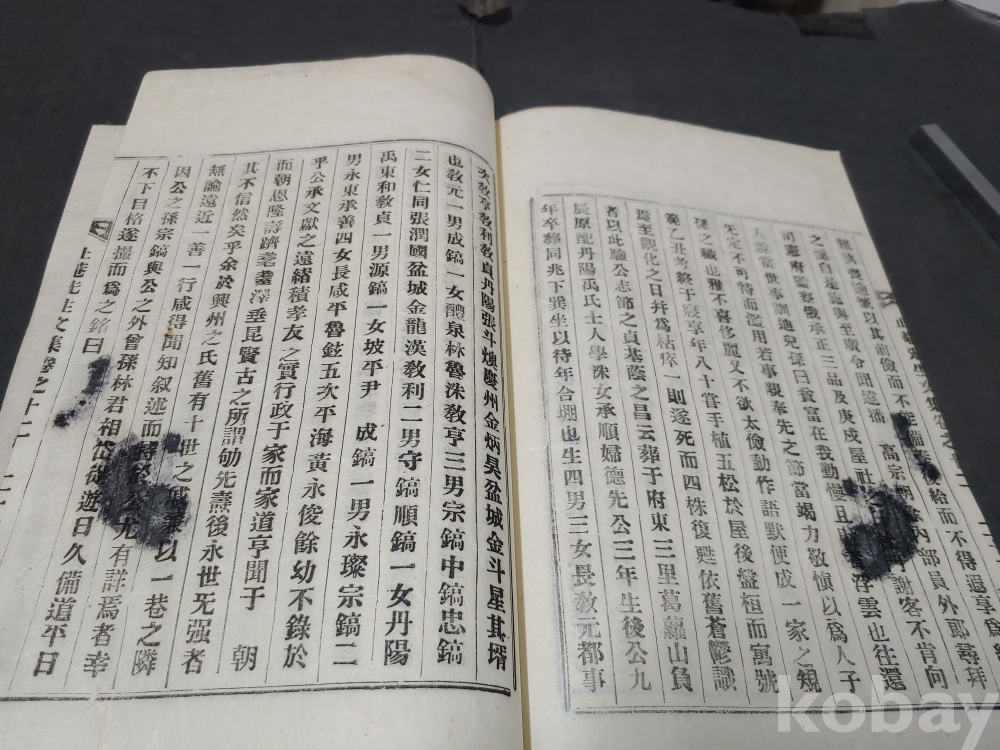 以其前儉而不能備養後給而不得遐享爲
之 自是 與至 令聞遠播 高宗朝 內部員外郎尋拜
司憲府監察俄承正三品及庚戌屋社之 謝客不肯向
人說當世事訓進兒孫曰貧富在我勤慢且 浮雲也往還
无定不可恃而濫用若事親奉先之節當竭力敬愼以爲人子
孫之職也雅不喜侈麗又不欲太儉動作語默便成一家之規
範乙丑考終于寢享年八十嘗手植五松於屋後盤桓而寓號
焉至觀化之日幷爲枯瘁一則遂死而四株復甦依舊蒼鬱識
者以此驗公志節之貞基蔭之昌云葬于府東三里葛蘿山負
辰原配丹陽禹氏士人學洙女承順婦德先公三年生後公九
年卒葬同兆下巽坐以待年合堋也生四男三女長敎元都事
次敎亨敎利敎貞丹陽張斗煥慶州金炳昊盆城金斗星其壻
也敎元一男成鎬一女醴泉林魯洙敎亨三男宗鎬中鎬忠鎬
二女仁同張潤國盆城金龍漢敎利二男守鎬順鎬一女丹陽
禹東和敎貞一男源鎬一女坡平尹 成鎬一男永璨宗鎬二
男永東承善四女長咸平魯鉉五次平海黃永俊餘幼不錄於
乎公承文獻之遠緖積孝友之實行政于家而家道亨聞于 朝
而朝恩隆壽躋耄耋澤垂昆賢古之所謂劬先燾後永世旡强者
其不信然矣乎余於興州之氏舊有十世之 以一巷之隣
無論遠近一善一行咸得聞知叙述而 公尤有詳焉者幸
因公之孫宗鎬與公之外曾孫林君相岱從遊日久備道平日
不下曰格遂撮而爲之銘曰
止菴先生文集卷之十二